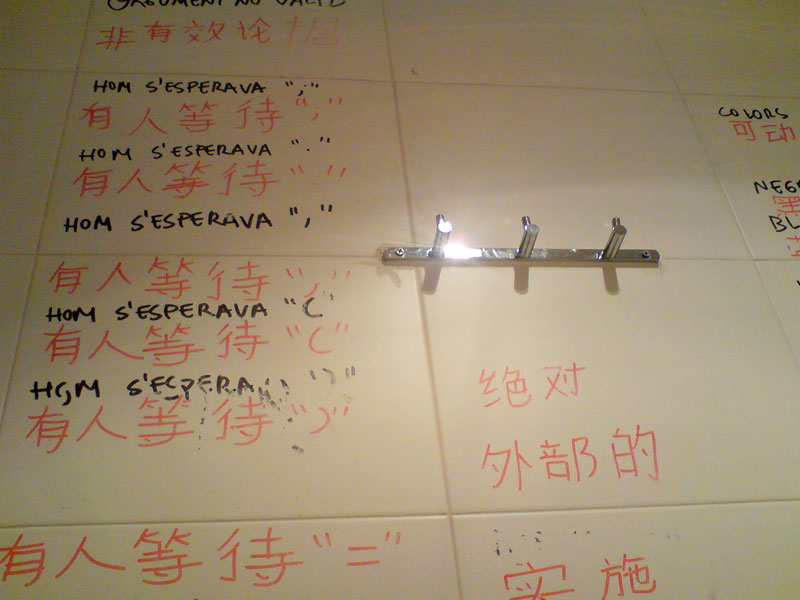 ARGUMENT NO VALID
非有效论据
HOM S'ESPERAVA ";"
有人等待";"
HOM S'ESPERAVA "."
有人等待"."
HOM S'ESPERAVA ","
有人等待","
HOM S'ESPERAVA "("
有人等待"("
HOM S'ESPERA ")"
有人等待")"
有人等待"="
绝对
外部的
实施
COLORS
可动
NEG
黑
BL